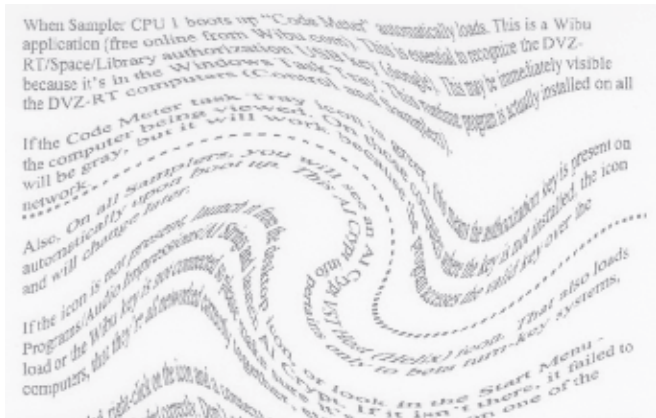 When Sampler CPU 1 boots up "Code Meter" automatically loads. This is a Wibu
application (free online from Wibu.com). This is essential to recognize the DVZ-
RT/Space/Library authorization USB key (dongle). This may be immediately visible
because it's in the Windows Task Tray. This program is actually installed on all
the DVZ-RT computers (Control and Samplers).
If the Code Meter task Tray icon is green, this means the authorization key is present on
the computer being viewed. On those computers the key is not installed, the icon
will be gray, but it will work because recognizes the valid key over the
network.
Also, On all Samplers, you will see an AI Crypt VST Host (Helix) icon. That also loads
automatically upon boot up. This AI Crypt info pertains only to beta turn-key systems,
and will change later.
If the icon is not present, launch it from the desktop icon, or look in the Start Menu -
Programs/Audio Impressions/AI Crypt. If it isn't there, it failed to
load or the Wibu key is not connected to one of the
computers, that they're all networked
right-click on the icon and